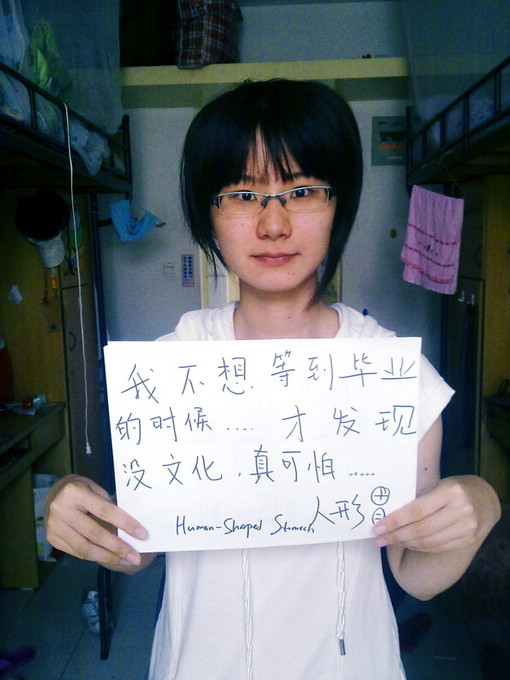 我不想等到毕业
的时候....才发现
没文化，真可怕.....
Human-Shaped Stomach 人形